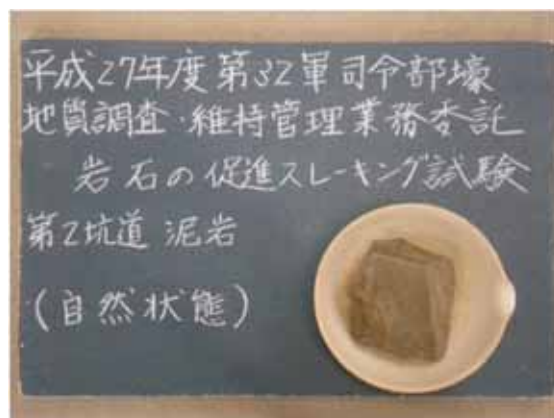 平成27年度第32軍司令部壕
地質調査・維持管理業務委託
岩石の促進スレーキング試験
第2坑道 泥岩
(自然状態)